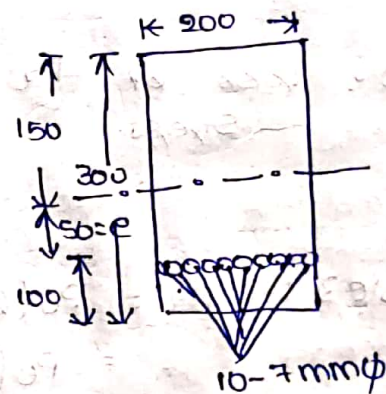 200
150
300
50=e
100
10-7mmφ